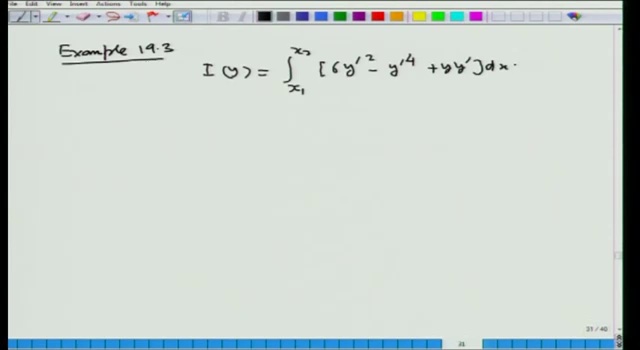 File Edit View Insert Actions Tools Help
Example 19.3
I(y) = ∫_{x₁}^{x₂} [6y'² - y'⁴ + yy'] dx.
31 / 40
31